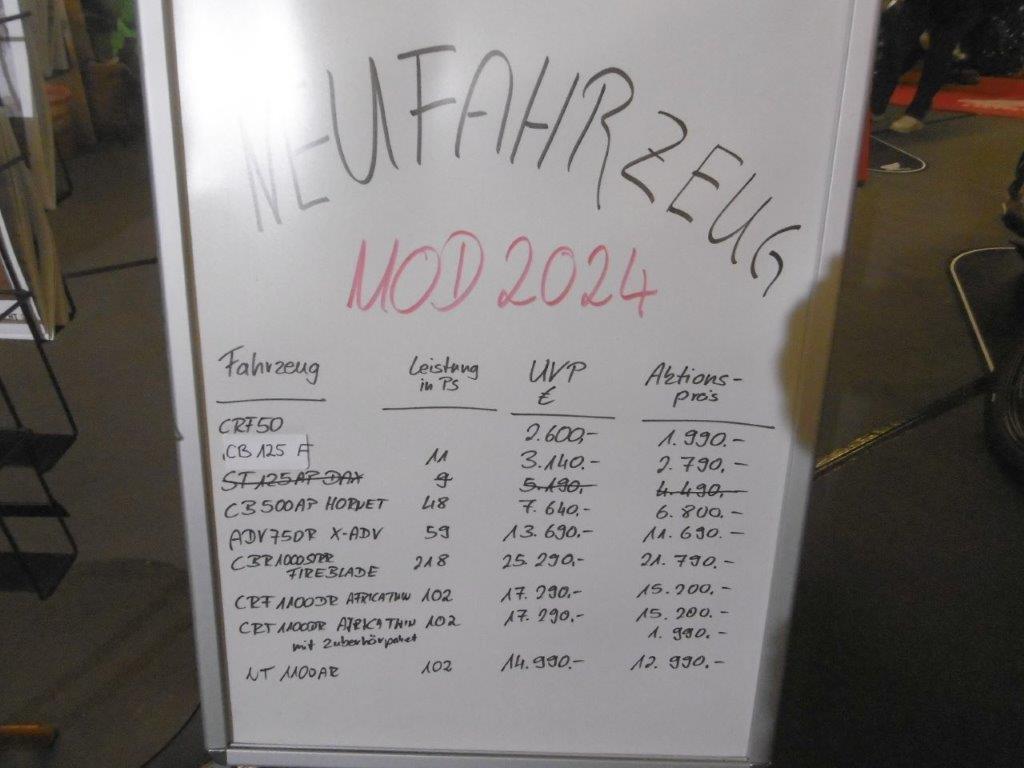 NEUFAHRZEUG
MOD 2024
Fahrzeug Leistung in PS UVP € Aktions-preis
CRF50 2.600,- 1.990.-
CB 125 F 11 3.140.- 2.790,-
ST 125 AP DAX 9 5.190,- 4.490,-
CB500AP HORNET 48 7.640.- 6.800.-
ADV750R X-ADV 59 13.690.- 11.690.-
CBR1000STPR 218 25.290,- 21.790.-
FIREBLADE
CRF 1100DR AFRICATWIN 102 17.290.- 15.200.-
CRF 1100DR AFRICATWIN 102 17.290.- 15.200.-
mit Zuberhörpaket 1.990.-
NT 1100AR 102 14.990.- 12.990.-